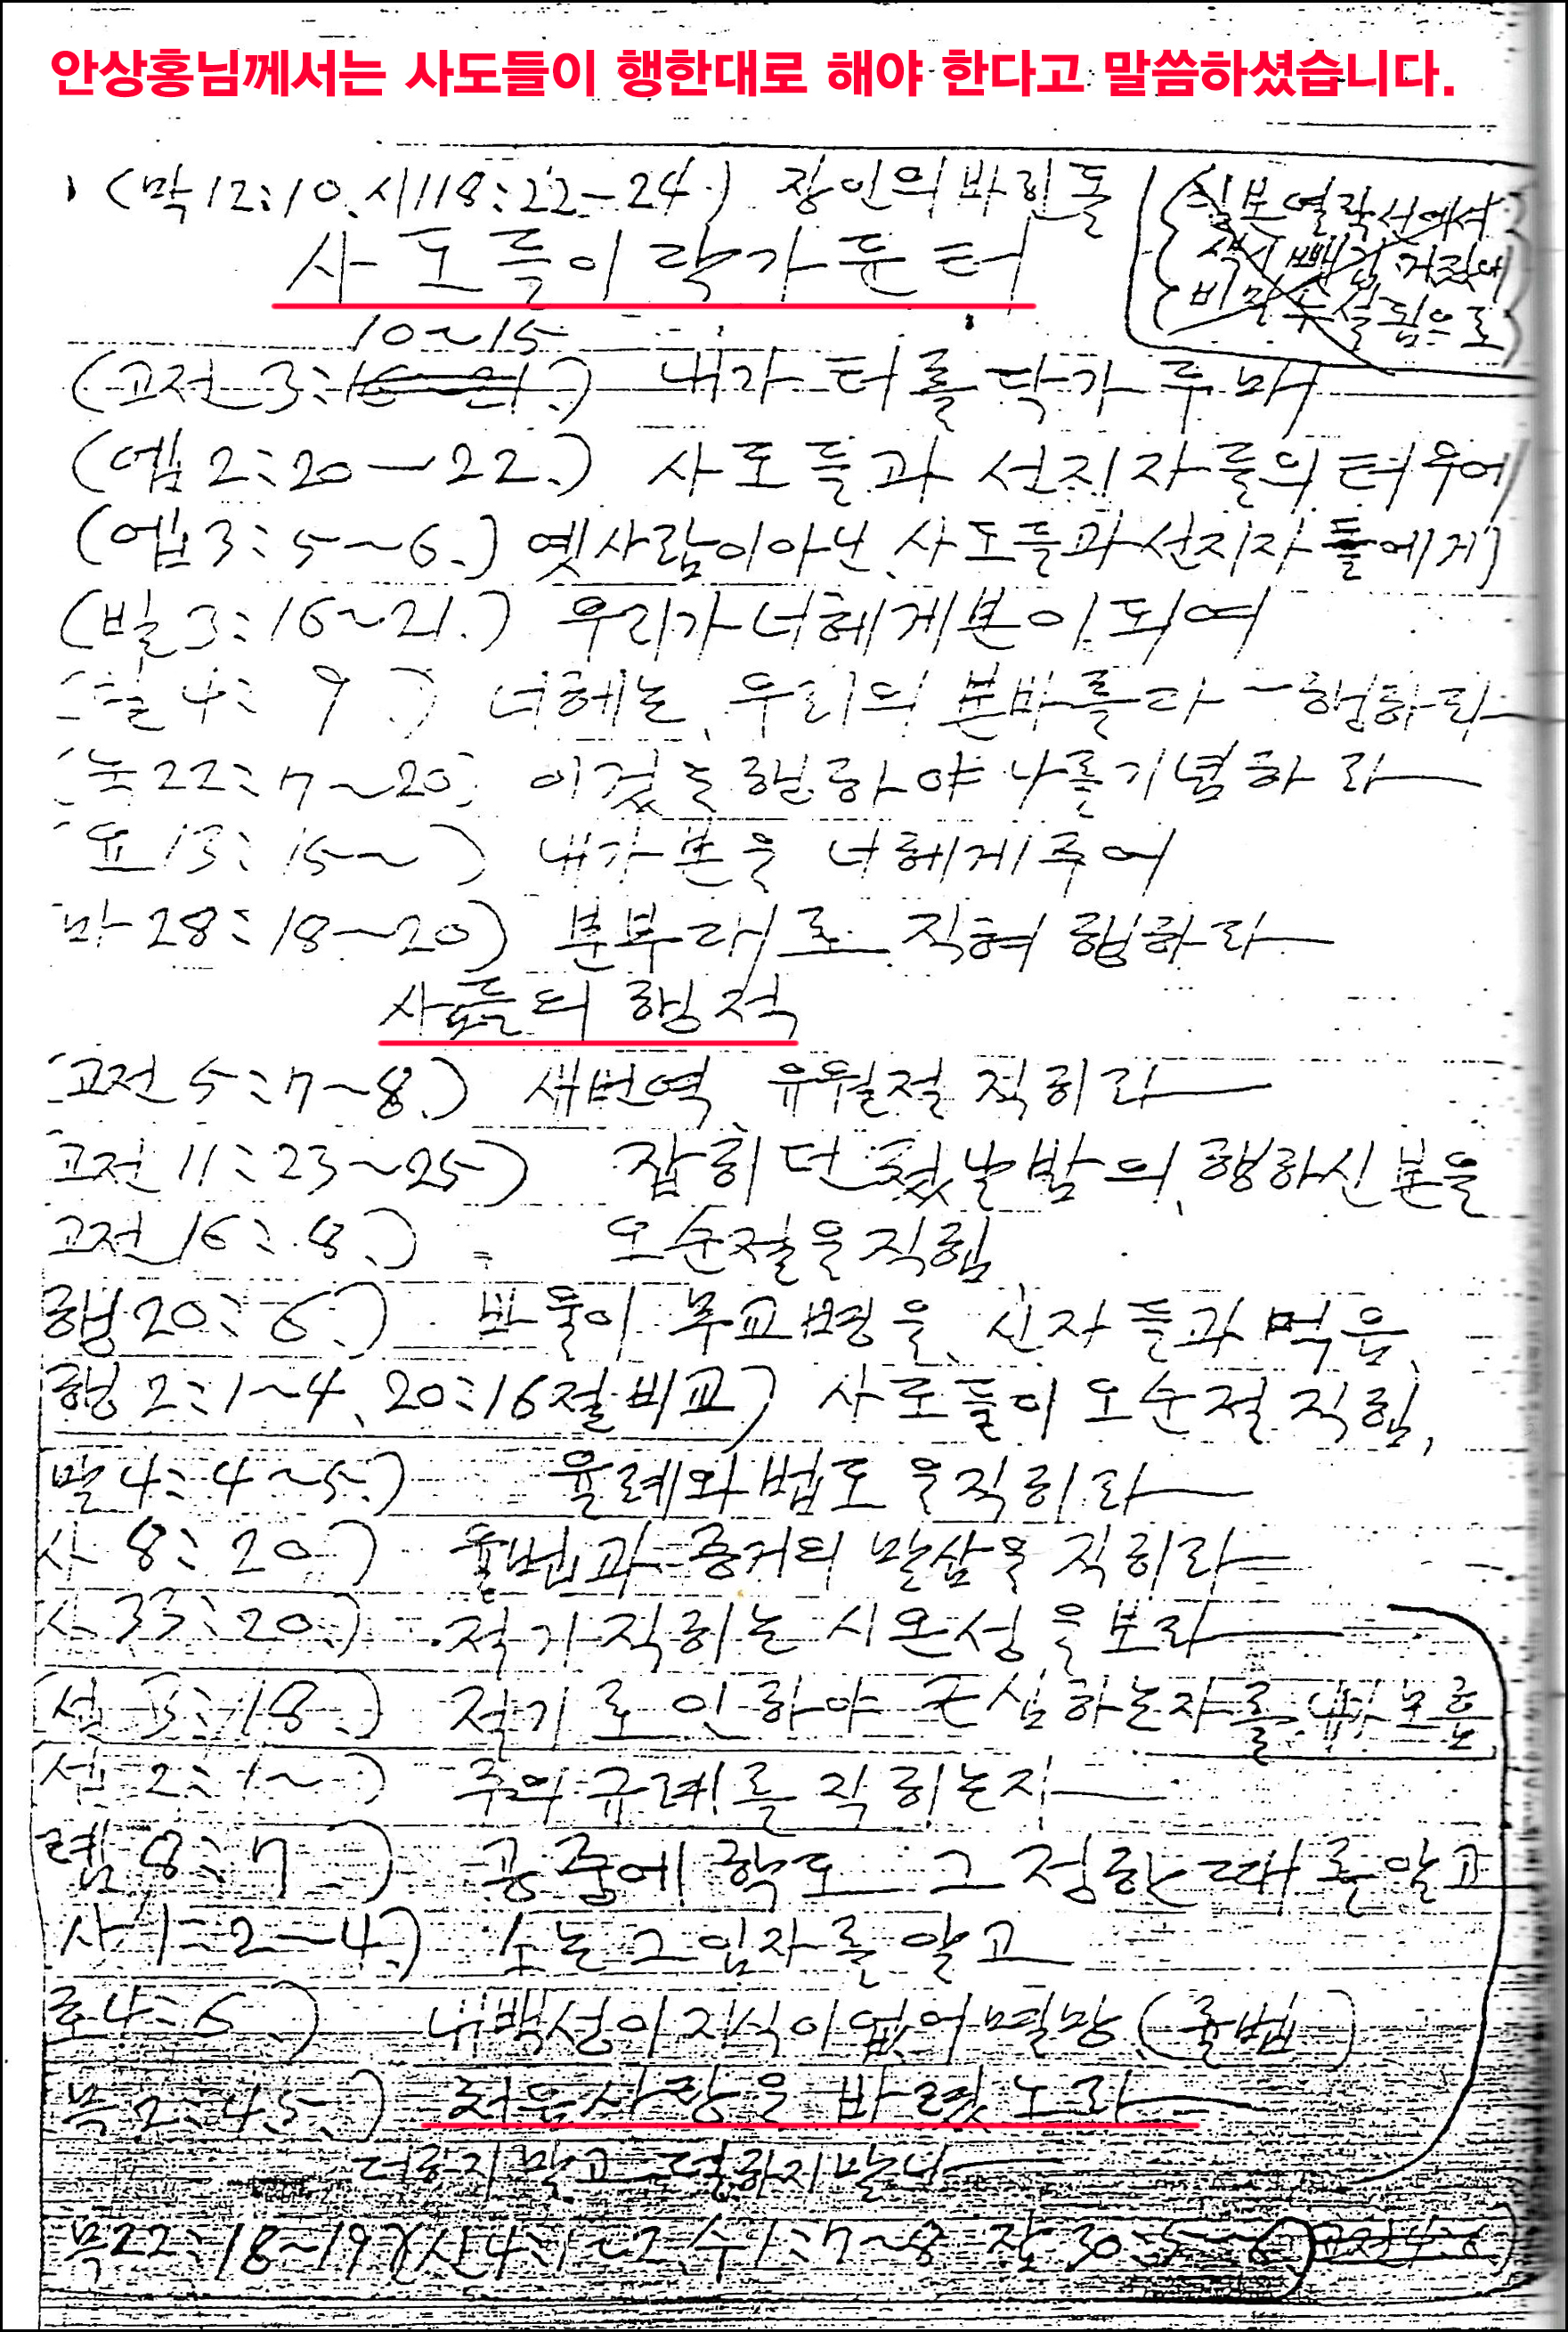 안상홍님께서는 사도들이 행한대로 해야 한다고 말씀하셨습니다.
(막12:10. 시118:22-24.) 장인의 바린돌
일보 열락선에서
비밀 누설됨으로
사도들이 락가둔 터
10~15
(고전 3: .) 내가 터를 닥가 두매
(엡 2:20-22.) 사도들과 선지자들의 터 우에
(엡 3:5~6.) 옛사람이 아닌 사도들과 선지자들에게
(빌 3:16~21.) 우리가 너헤게 본이 되여
빌 4: 9.) 너헤는 우리의 본바를 다 행하라
눅 22:7~20. 이것슬 행하야 나를 기념하라
요 13:15~) 내가 본을 너헤게 주어
마 28:18~20) 분부대로 직혀 행하라
사도들의 행적
고전 5:7~8.) 새번역 유월절 직히라
고전 11:23~25) 잡히던 날 밤의 행하신 본을
고전 16:8.) 오순절을 직힘
행 20:6.) 바울이 무교병을 신자들과 먹음
행 2:1~4, 20:16절 비교) 사도들이 오순절 직힘,
말 4:4~5.) 율례와 법도을 직히라
사 8:20.) 율법과 증거의 말삼을 직히라
사 33:20.) 적기 직히는 시온성을 보라
(섭 3:18.) 적기로 인하야 근심하는 자를 내가 모흔
섭 2:1~) 주의 규례를 직히는자
렘 8:7.) 공중에 학도 그 정한 때를 알고
사 1:2-4.) 소는 그 임자를 알고
호 4:6.) 내 백성이 지식이 없어 멸망 (률법)
묵 2:4.5.) 처음 사랑을 바렷노라
더하지 말고 덜하지 말나
묵 22:18~19)(신 4:1~2. 수 1:7~8 잠 30:5~6)